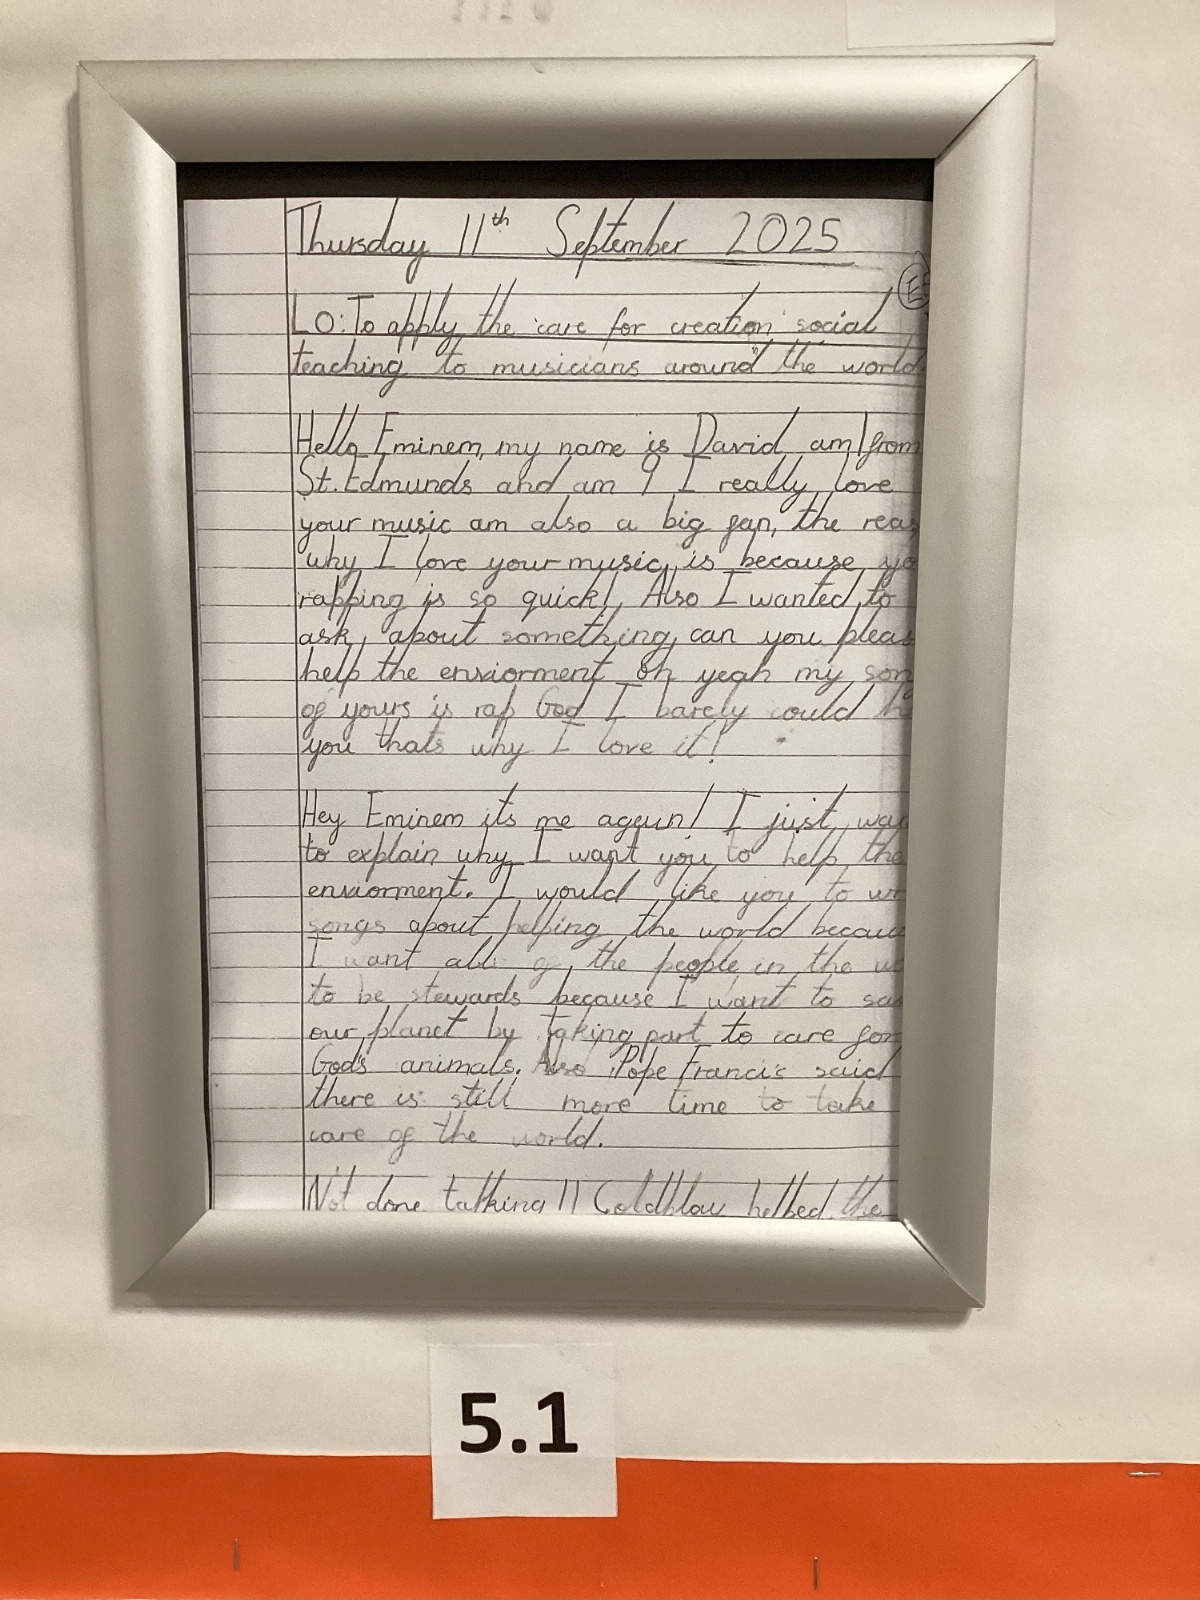 Thursday 11th September 2025
LO: To apply the 'care for creation' social
teaching to musicians around the world.
Hello Eminem, my name is David, am from
St. Edmunds and am 9 I really love
your music am also a big fan, the reas
why I love your music, is because yo
rapping is so quick! Also I wanted to
ask, about something, can you pleas
help the enviorment oh yeah my son
of yours is rap God I barely could h
you thats why I love it!
Hey Eminem its me agaun! I just wan
to explain why I want you to help the
enviorment. I would like you to wr
songs about helping the world becau
I want all of the people in the wo
to be stewards because I want to sa
our planet by taking part to care for
God's animals. Also Pope Francis said
there is still more time to take
care of the world.
Not done talking!! Coldplay helped the
5.1